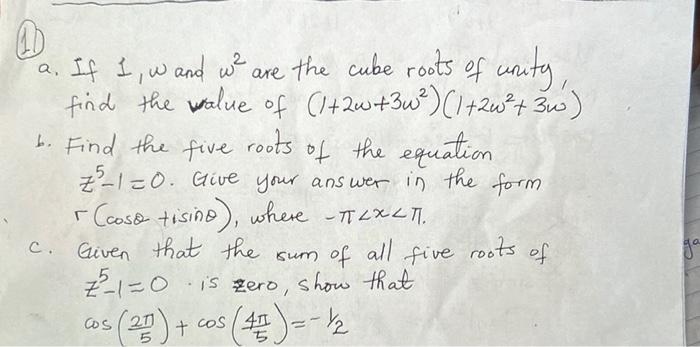 11
a. If 1, w and w² are the cube roots of unity,
find the value of (1+2w+3w²)(1+2w²+3w)
b. Find the five roots of the equation
z⁵-1=0. Give your answer in the form
r(cosθ+isinθ), where -π<x<π.
c. Given that the sum of all five roots of
z⁵-1=0 is zero, show that
cos(2π/5) + cos(4π/5) = -1/2